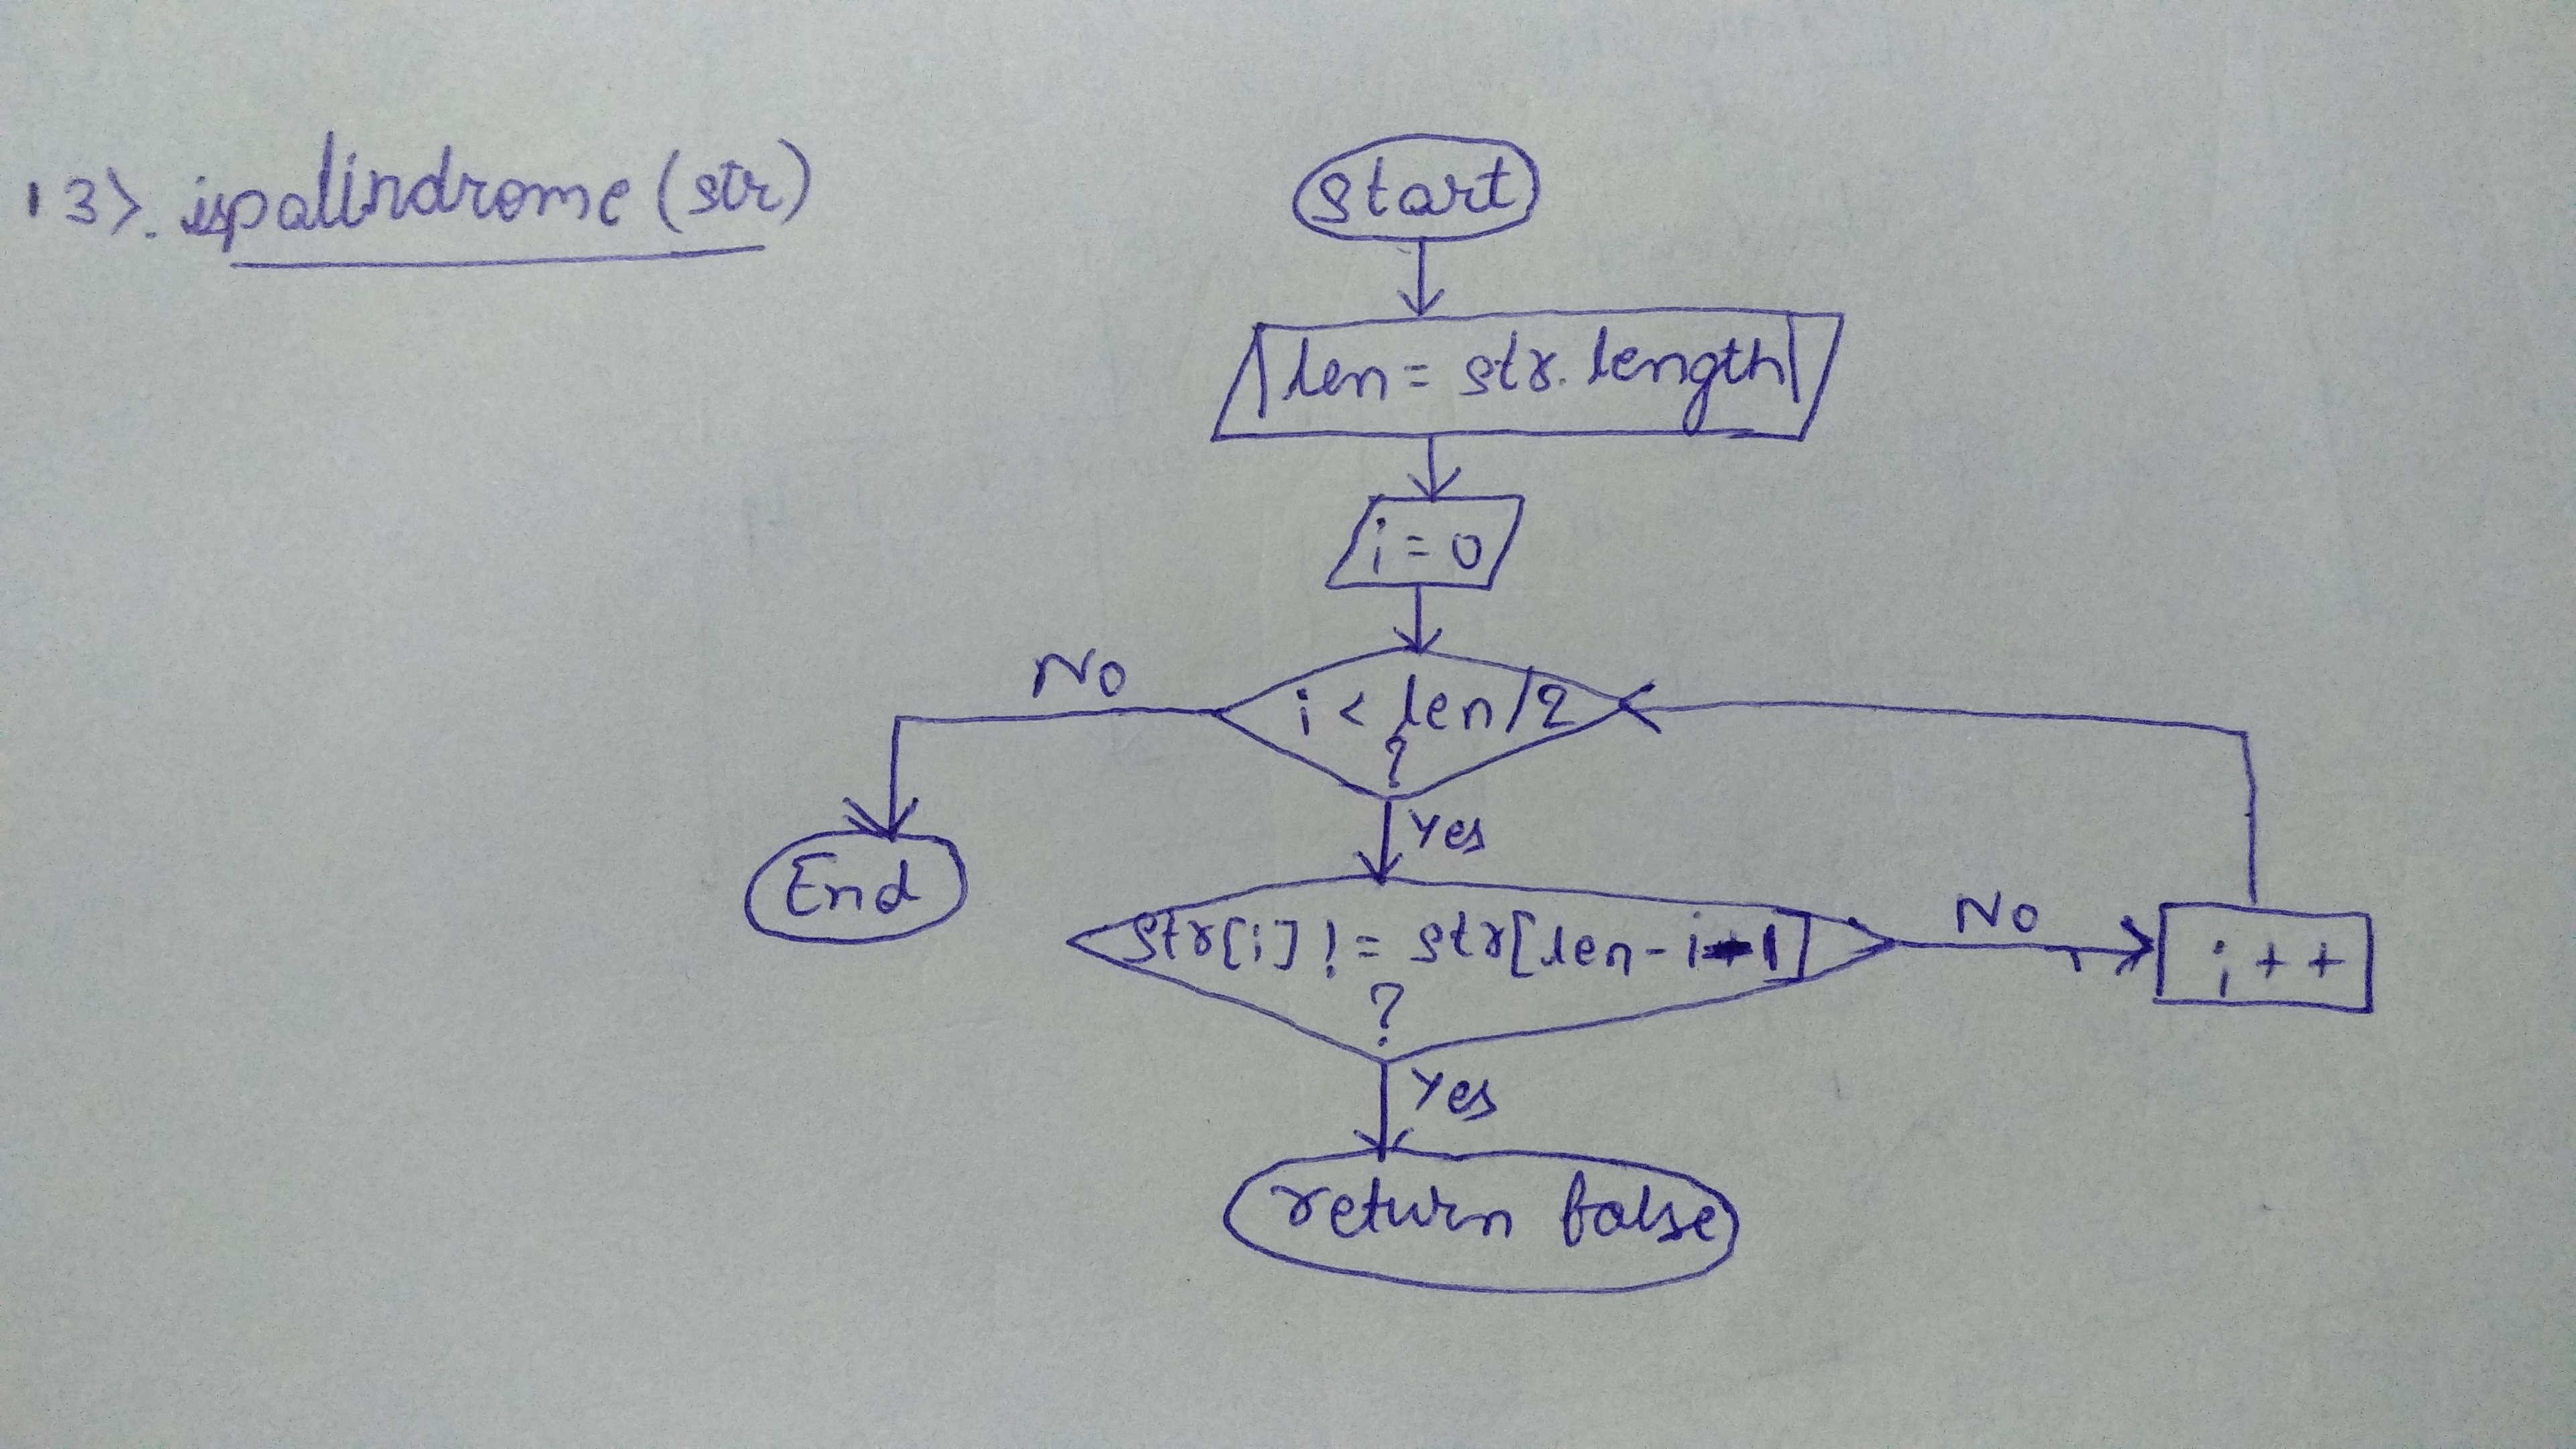 13>. ispalindrome (str)
start
len = str. length
i = 0
i < len/2
?
No
Yes
End
str[i] != str[len-i-1]
?
No
i++
Yes
return false